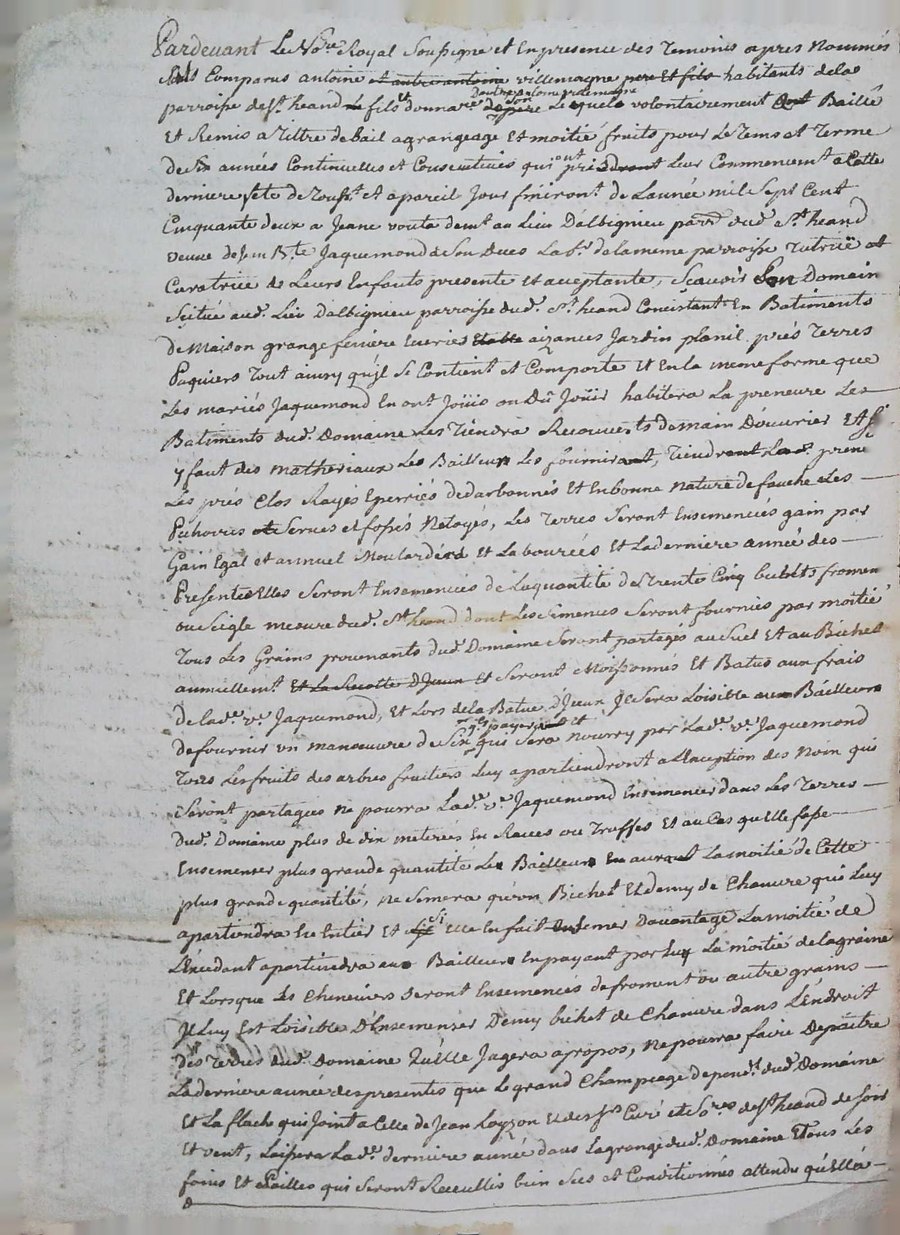 Pardevant Le No.re Royal Soussigné et En presence des Temoins apres Nommés
Comparus antoine et autre antoine villemagne pere Et fils habitants de la
d'autre antoine villemagne
parroisse de St. heand fils donnaire de son pere Lequel volontairement Baillé
Et Remis a Tiltre de bail a grangeage Et moitié fruits pour Le Tems et Terme
de Six années Continuelles et Consecutives qui ont pris Leur Commencemt. a Cette
derniere fete de Touss.t et a pareil Jour finiront de L'année mil Sept Cent
Cinquante deux a Jeane vouta demt. au Lieu D'albignieu parr.e dud. St. heand
veuve de feu B.te Jaquemond de Son vivant Lab.r de la meme parroisse Tutrice et
Curatrice de Leurs Enfants presente et acceptante, Scavoir Son Domain
Scitué aud. Lieu D'albignieu parroisse dud. St. heand Consistant En Batiments
de Maison grange feniere Ecuries Etable aizances Jardin planil prés Terres
Paquiers Tout ainsy qu'il Se Contient et Comporte Et En la meme forme que
Les mariés Jaquemond En ont Joüis ou Dû Joüir habitera La preneure Les
Batiments dud. Domaine Les Tiendra Recouverts de main D'ouvrier Et S'il
y faut des matheriaux Les Bailleur Les fournira, Tiendra Lad. prene
Les prés Clos Rayés Eperriés dedarbonnés Et En bonne Nature de fauche Les
Pichoires et Serves et fossés Netoyés, Les Terres Seront Ensemencées gain par
Gain Egal et annuel Moulardées et Labourées Et La derniere année des
Presentes Elles Seront Ensemencées de La quantité de Trente Cinq bichets fromen
ou Seigle mesure dud. St. heand dont Les Semences Seront fournies par moitié
Tous Les Grains provenants dud. Domaine Seront partagés au Suel Et au Bichet
annuellemt. Et La Recolte D'Iceux Et Seront Moissonnés Et Batus aux frais
De lad. ve. Jaquemond, Et Lors de la Batue D'Iceux Il Sera Loisible au Bailleur
qu'il payera et
de fournir un manoeuvre de Six qui Sera Nourry par Lad. ve. Jaquemond
Tous Les fruits des arbres fruitiers Luy apartiendront a L'exception des Noix qui
Seront partagées ne poura Lad. ve. Jaquemond Ensemencer dans Les Terres
dud. Domaine plus de dix meterées En Raves ou Truffes Et au Cas qu'Elle fasse
Ensemenser plus grande quantité Le Bailleur En aura La moitié de Cette
plus grande quantité, ne Semera qu'un Bichet Et demy de Chanvre qui Luy
apartiendra En Entier Et Si Elle En fait Semer Davantage La moitié de
L'Excedant apartiendra au Bailleur En payant par Luy La moitié de la graine
Et Lorsque Les Cheneviers Seront Ensemencés de froment ou autre grains
Il Luy Est Loisible D'Ensemenser Demy bichet de Chanvre dans L'Endroit
des Terres dud. Domaine Qu'elle Jugera a propos, ne pourra faire Depaitre
La derniere année des presentes que Le grand Champeage dud. Domaine
Et La flache qui Joint a Celle de Jean Loyzon Et des Srs. Curé et de St. heand de Soir
Et vent, Laissera La d. derniere année dans La grange dud. Domaine Tous Les
foins Et Pailles qui Seront Recueillis bien Secs et Conditionnés attendu qu'Ella